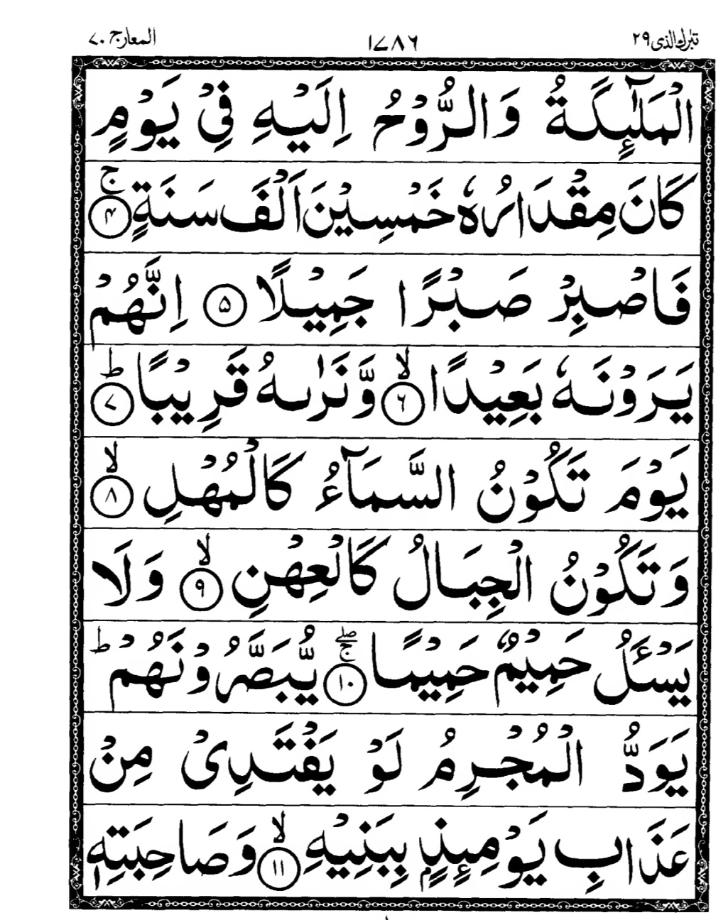 تبٰرك الذی ٢٩
١٧٨٦
المعارج ٧٠
الْمَلٰٓئِكَةُ وَالرُّوْحُ اِلَيْهِ فِيْ يَوْمٍ
كَانَ مِقْدَارُهٗ خَمْسِيْنَ اَلْفَ سَنَةٍ ۚ ﴿٤﴾
فَاصْبِرْ صَبْرًا جَمِيْلًا ﴿٥﴾ اِنَّهُمْ
يَرَوْنَهٗ بَعِيْدًا ۙ ﴿٦﴾ وَّنَرٰىهُ قَرِيْبًا ؕ ﴿٧﴾
يَوْمَ تَكُوْنُ السَّمَآءُ كَالْمُهْلِ ۙ ﴿٨﴾
وَتَكُوْنُ الْجِبَالُ كَالْعِهْنِ ۙ ﴿٩﴾ وَلَا
يَسْـَٔلُ حَمِيْمٌ حَمِيْمًا ۚۖ ﴿١٠﴾ يُّبَصَّرُوْنَهُمْ ؕ
يَوَدُّ الْمُجْرِمُ لَوْ يَفْتَدِیْ مِنْ
عَذَابِ يَوْمِئِذٍۭ بِبَنِيْهِ ۙ ﴿١١﴾ وَصَاحِبَتِهٖ